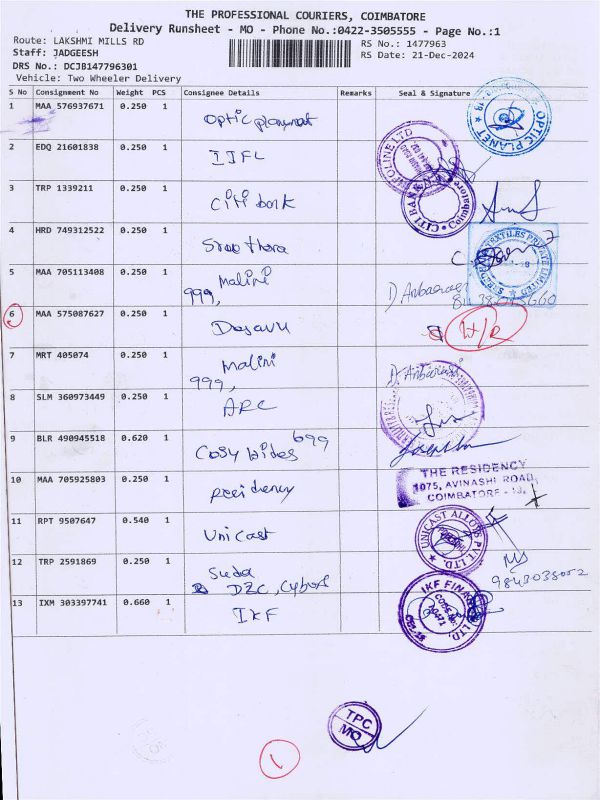 THE PROFESSIONAL COURIERS, COIMBATORE
Delivery Runsheet - MO - Phone No.:0422-3505555 - Page No.:1
Route: LAKSHMI MILLS RD
Staff: JADGEESH
DRS No.: DCJB147796301
Vehicle: Two Wheeler Delivery
RS No.: 1477963
RS Date: 21-Dec-2024
S No Consignment No Weight PCS Consignee Details Remarks Seal & Signature
1 MAA 576937671 0.250 1 Optic planet
OPTIC PLANET
2 EDQ 21601838 0.250 1 IIFL
INFOLINE LTD
3 TRP 1339211 0.250 1 Citi bank
CITI BANK Coimbatore
4 HRD 749312522 0.250 1
TEXTILES PRIVATE LIMITED
5 MAA 705113408 0.250 1 Malini
999,
6 MAA 575087627 0.250 1
7 MRT 405074 0.250 1 Malini
999,
8 SLM 360973449 0.250 1 ARC
9 BLR 490945518 0.620 1 699
10 MAA 705925803 0.250 1 Residency
THE RESIDENCY
1075, AVINASHI ROAD,
COIMBATORE - 18.
11 RPT 9507647 0.540 1 Unicast
UNICAST ALLOYS PVT. LTD.
12 TRP 2591869 0.250 1
9843038002
13 IXM 303397741 0.660 1 IKF
IKF FINANCE LTD.
TPC
MO
1